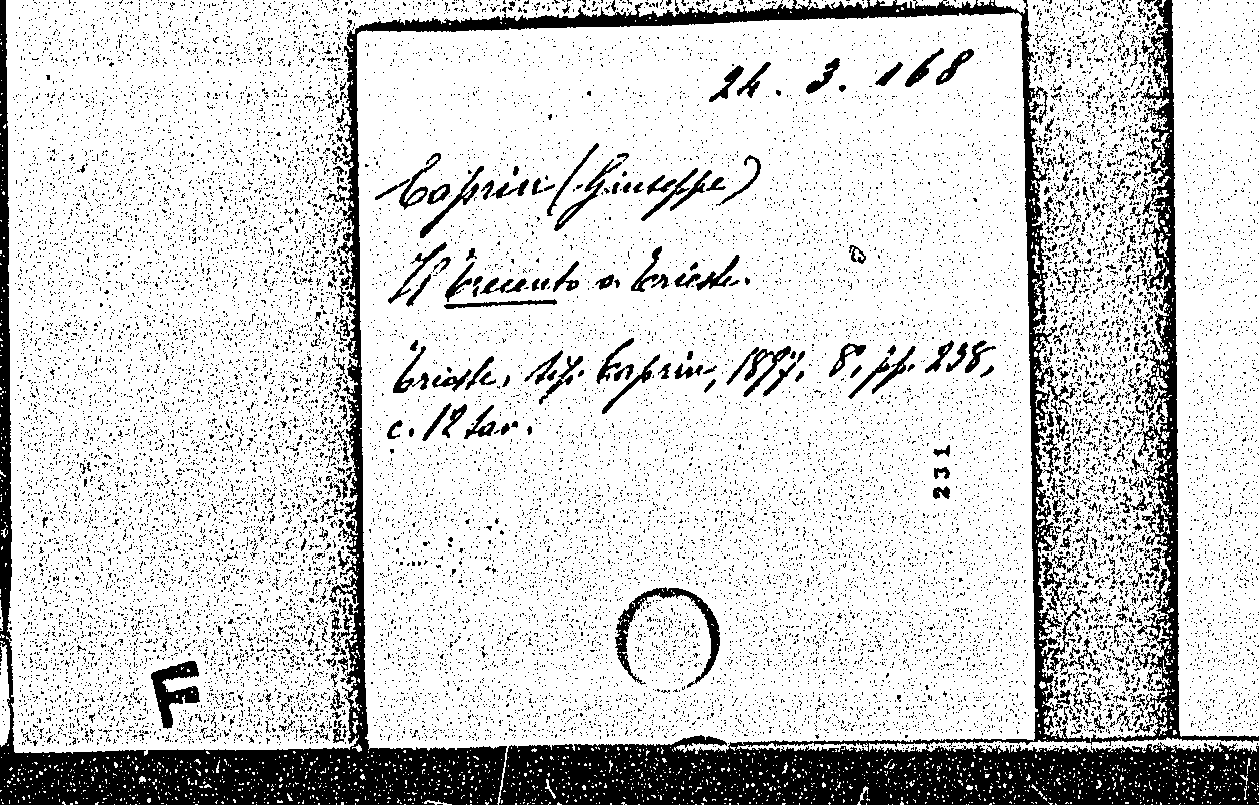 24. 3. 168
Caprin (Giuseppe)
Il Trecento a Trieste.
Trieste, tip. Caprin, 1897, 8°, pp. 238,
c. 12 tav.
231
F